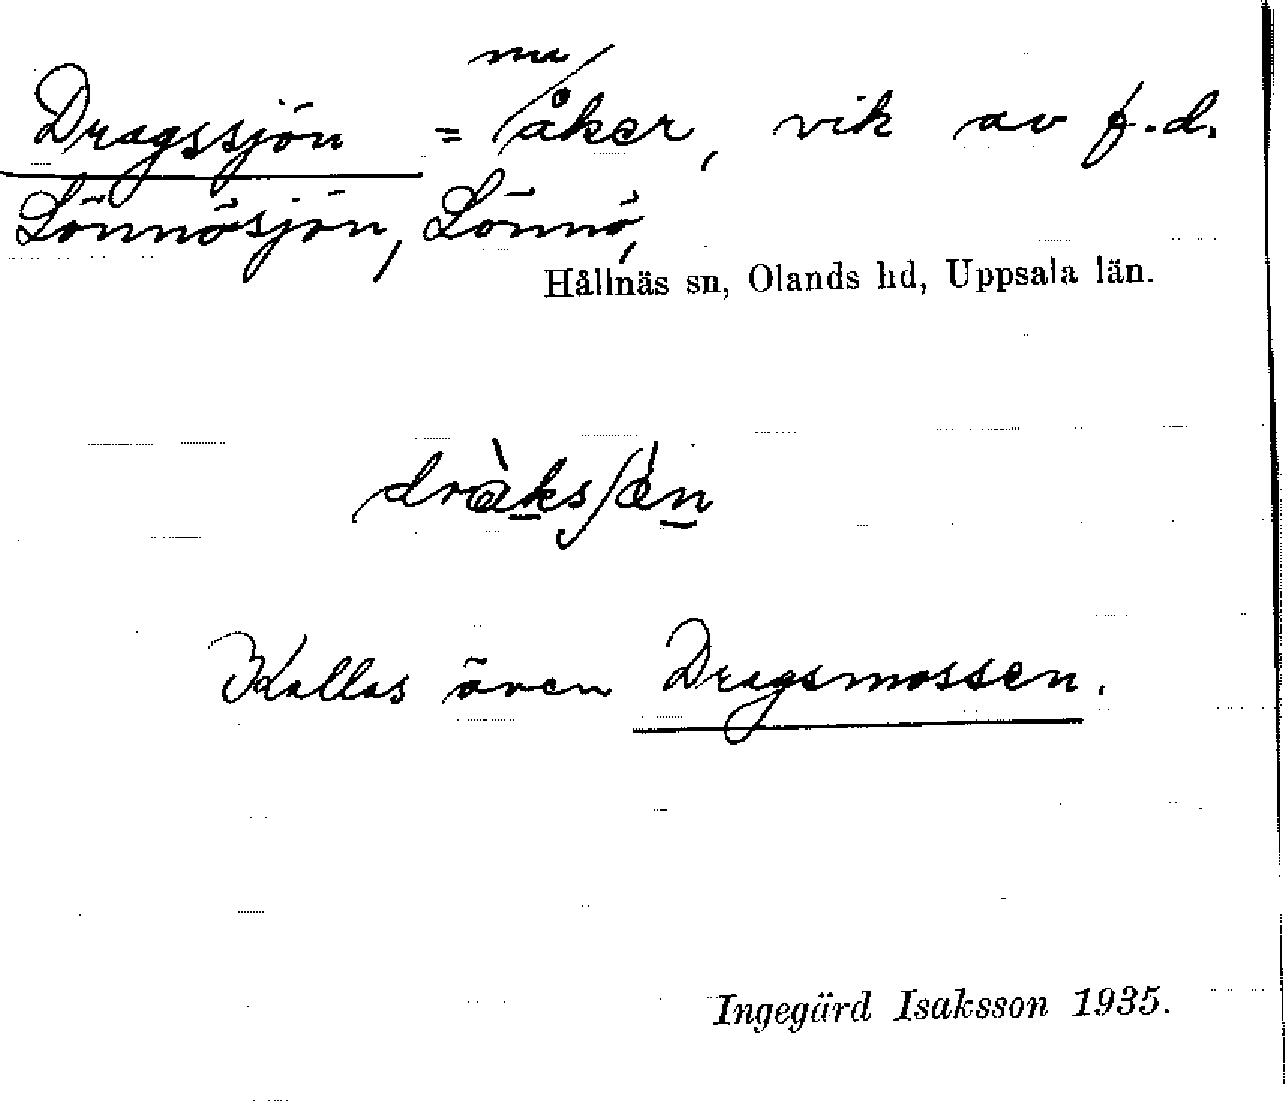 Dragssjön = nu åker, vik av f.d.
Lönnösjön, Lönnö,
Hållnäs sn, Olands hd, Uppsala län.
Kallas även Dragsmossen.
Ingegärd Isaksson 1935.